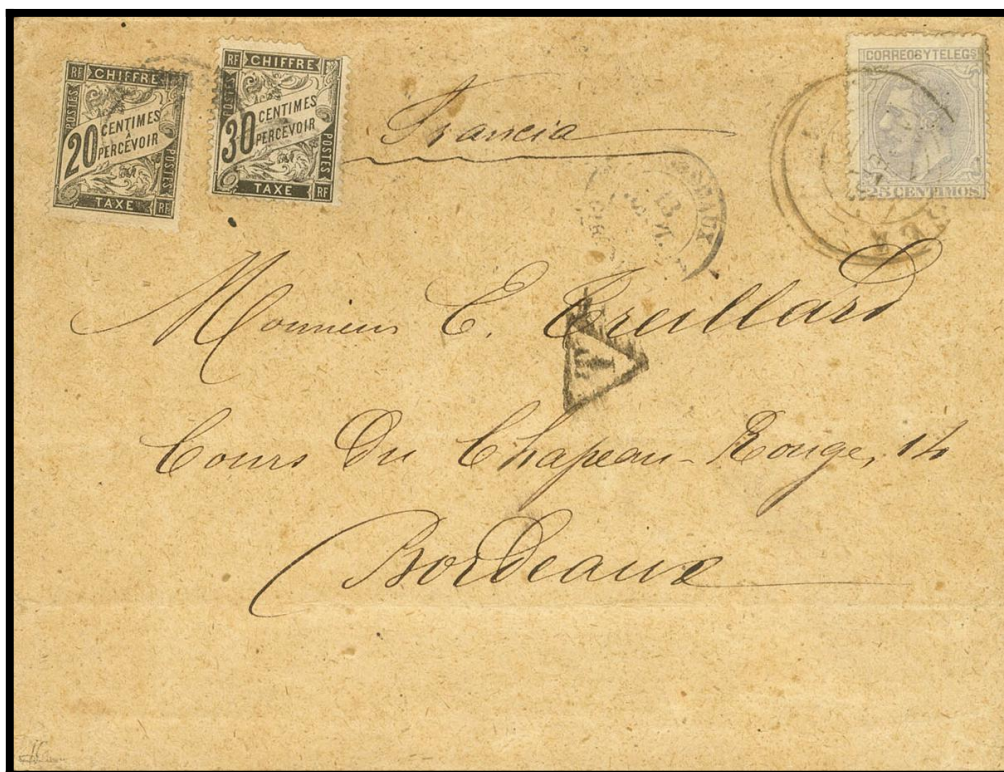 RF CHIFFRE
POSTES
20 CENTIMES
À
PERCEVOIR
POSTES
TAXE RF
RF CHIFFRE
POSTES
30 CENTIMES
À
PERCEVOIR
POSTES
TAXE RF
CORREOS Y TELEGS
25 CENTIMOS
Francia
Monsieur E. Treillard
T
Cours Du Chapeau-Rouge, 14
Bordeaux